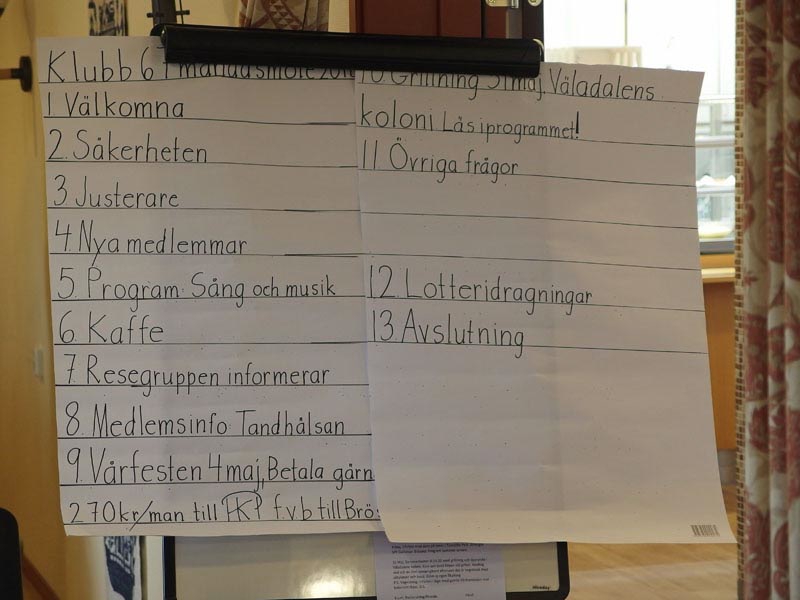 Klubb 67 månadsmöte
1 Välkomna
2. Säkerheten
3 Justerare
4. Nya medlemmar
5. Program: Sång och musik
6. Kaffe
7. Resegruppen informerar
8. Medlemsinfo Tandhålsan
9. Vårfesten 4 maj, Betala gärn
270kr/man till PKP f.v.b till Brö
10 Grillning 31 maj. Väladalens
koloni Läs i programmet!
11. Övriga frågor
12. Lotteridragningar
13. Avslutning